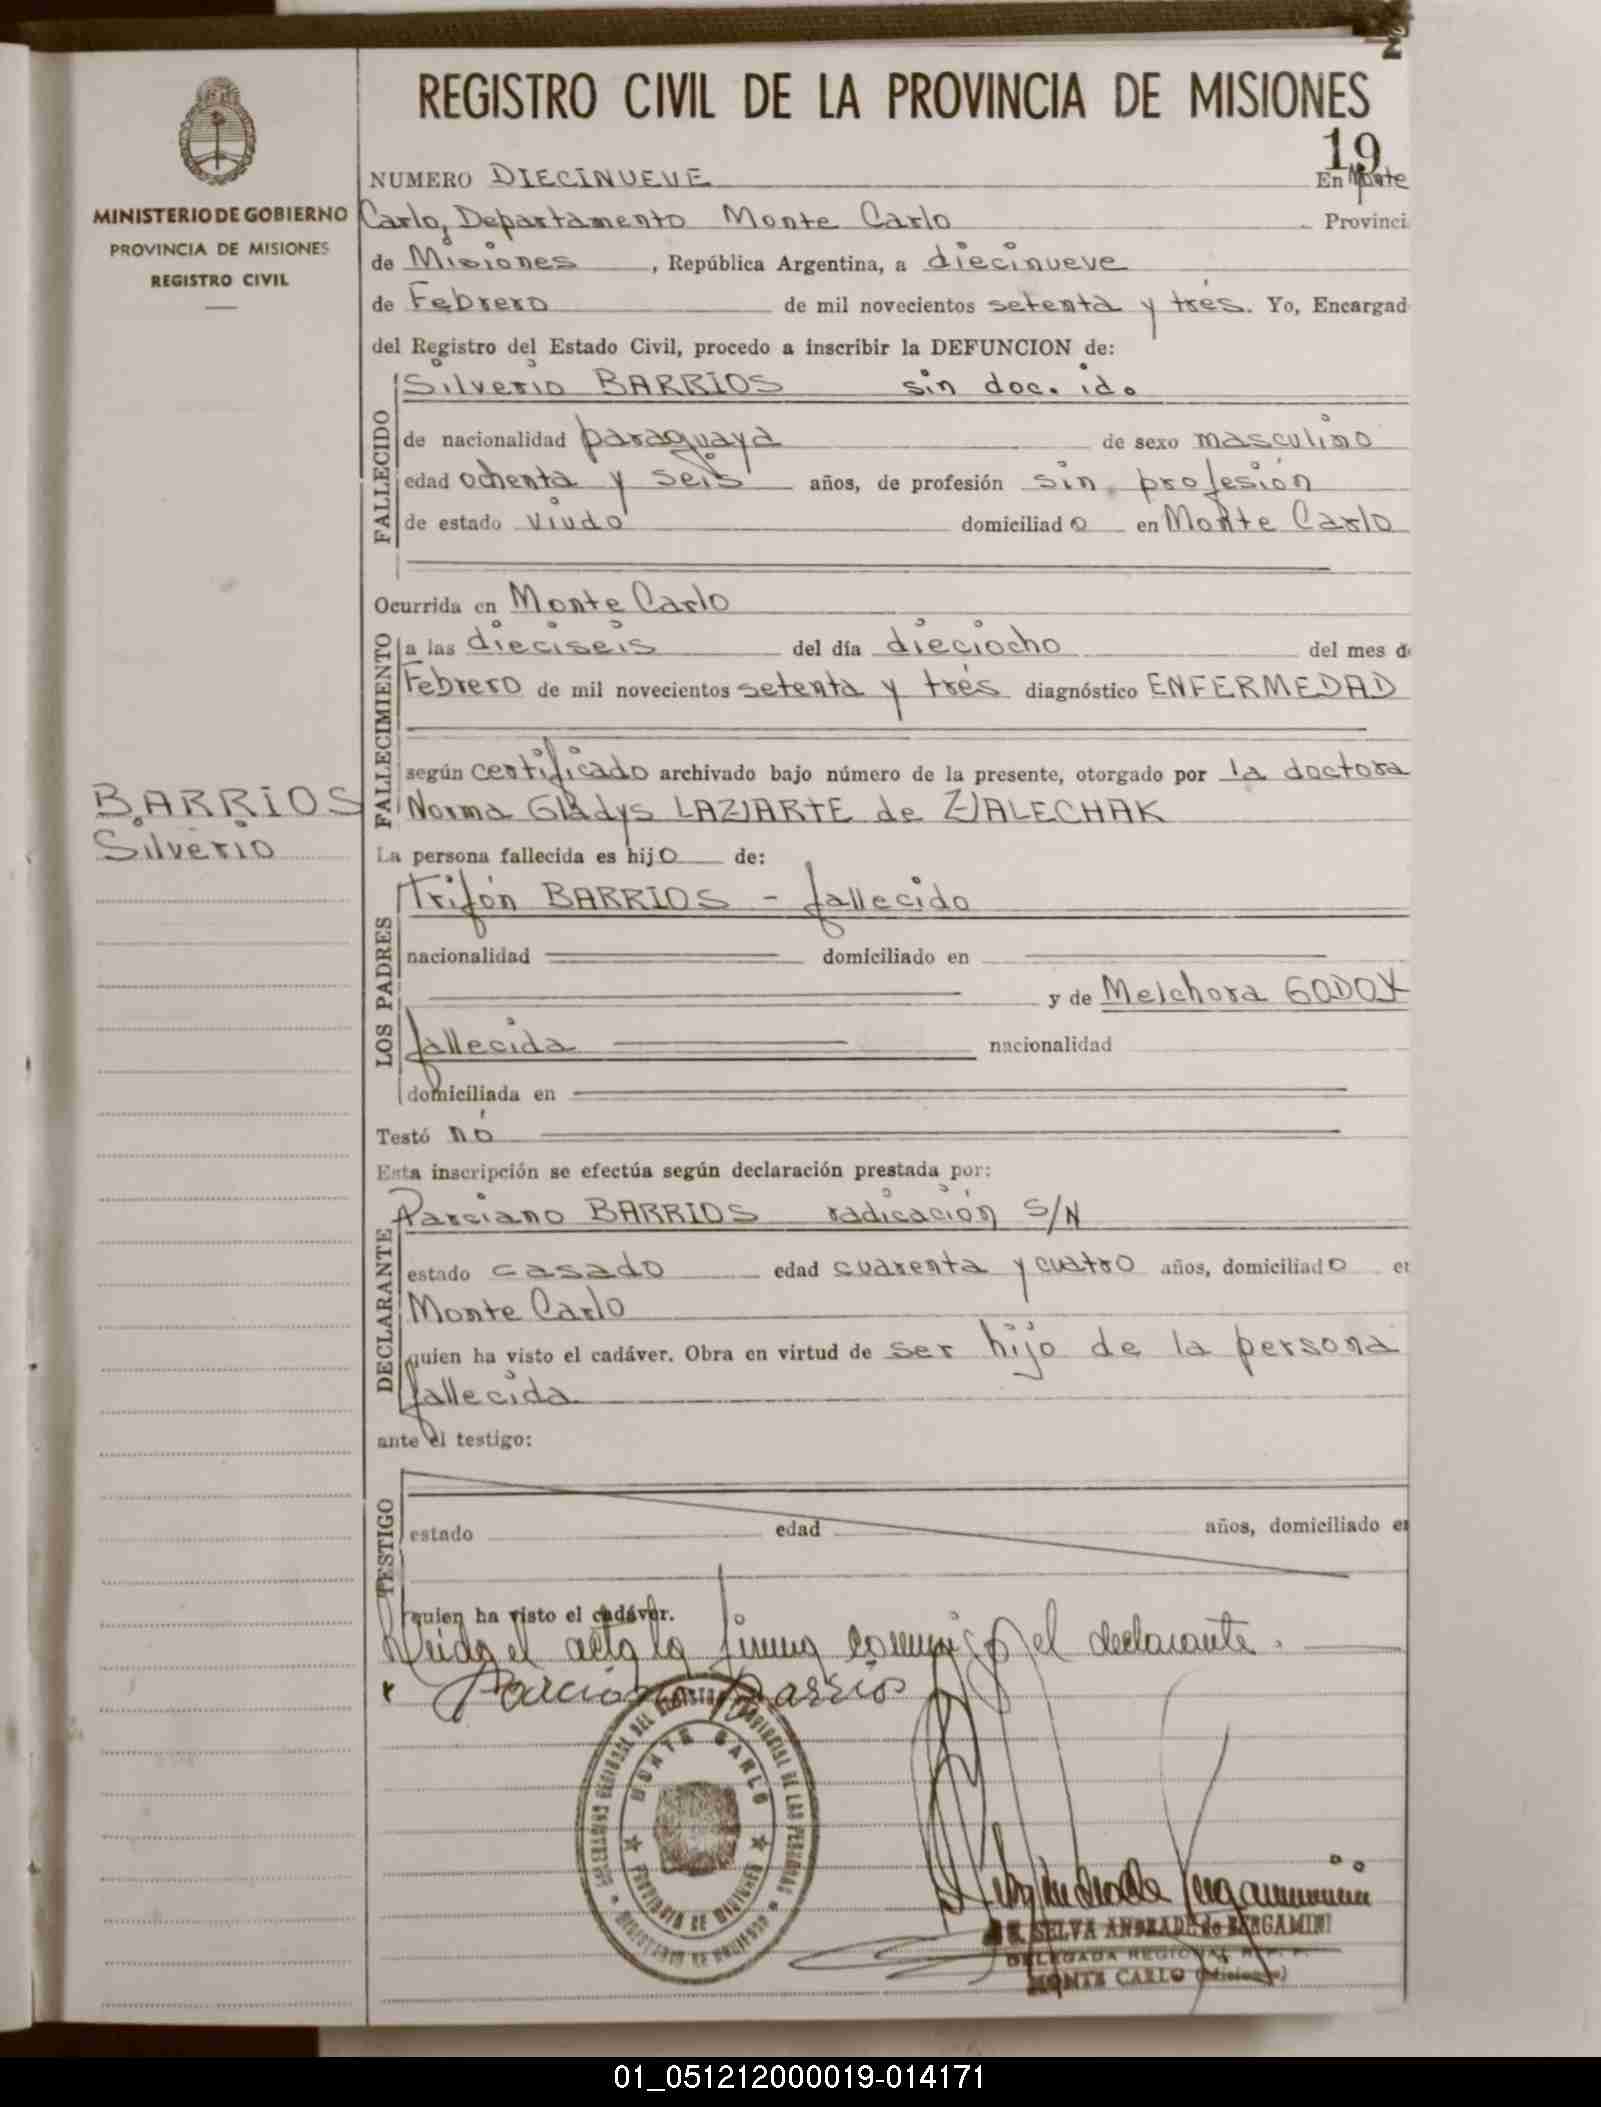 REGISTRO CIVIL DE LA PROVINCIA DE MISIONES
19
MINISTERIO DE GOBIERNO
PROVINCIA DE MISIONES
REGISTRO CIVIL
NUMERO DIECINUEVE En Monte
Carlo, Departamento Monte Carlo Provinci
de Misiones , República Argentina, a diecinueve
de Febrero de mil novecientos setenta y trés. Yo, Encargad
del Registro del Estado Civil, procedo a inscribir la DEFUNCION de:
FALLECIDO
Silverio BARRIOS sin doc. id.
de nacionalidad paraguaya de sexo masculino
edad ochenta y seis años, de profesión sin profesión
de estado viudo domiciliado en Monte Carlo
Ocurrida en Monte Carlo
FALLECIMIENTO
a las dieciseis del día dieciocho del mes d
Febrero de mil novecientos setenta y trés diagnóstico ENFERMEDAD
según certificado archivado bajo número de la presente, otorgado por la doctora
Norma Gladys LAZIARTE de ZIALECHAK
BARRIOS
Silverio
La persona fallecida es hijo de:
LOS PADRES
Trifón BARRIOS - fallecido
nacionalidad domiciliado en
y de Melchora GODOY
fallecida nacionalidad
domiciliada en
Testó nó
Esta inscripción se efectúa según declaración prestada por:
DECLARANTE
Parciano BARRIOS radicación S/N
estado casado edad cuarenta y cuatro años, domiciliado en
Monte Carlo
quien ha visto el cadáver. Obra en virtud de ser hijo de la persona
fallecida
ante el testigo:
TESTIGO
estado edad años, domiciliado en
quien ha visto el cadáver.
Leida el acta la firma conmigo el declarante.
Parciano Barrios
MONTE CARLO
PROVINCIA DE MISIONES
MINISTERIO DE GOBIERNO
SELVA ANDRADE de BERGAMINI
DELEGADA REGIONAL R. P. P.
MONTE CARLO (Misiones)
01_051212000019-014171